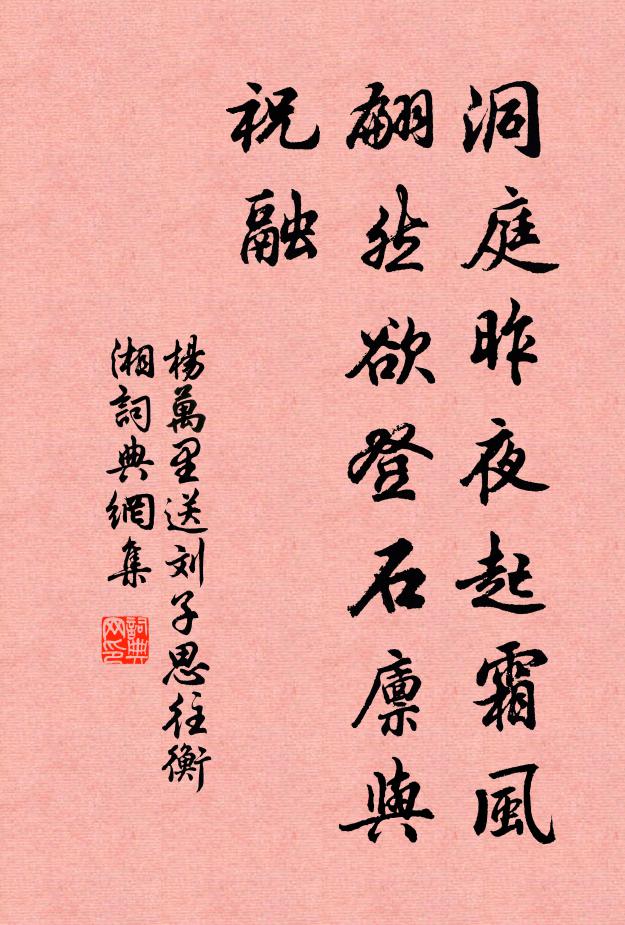 洞庭昨夜起霜風
翩然欲登石廪與
祝融
楊萬里送刘子思往衡
湘詞典網集
詞典
网印